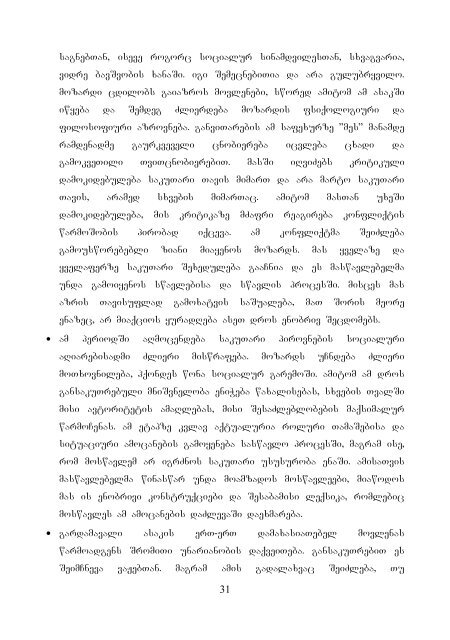 საგნებთან, ისევე როგორც სოციალურ სინამდვილესთან, სხვაგვარია,
ვიდრე ბავშვობის ხანაში. იგი შემეცნებითია და არა გულუბრყვილო.
მოზარდი ცდილობს გაიაზროს მოვლენები, სწორედ ამიტომ ამ ასაკში
იწყება და შემდეგ ძლიერდება მოზარდის ფსიქოლოგიური და
ფილოსოფიური აზროვნება. განვითარების ამ საფეხურზე "მეს" მანამდე
რამდენადმე გაურკვეველი ცნობიერება იცვლება ცხადი და
გამოკვეთილი თვითცნობიერებით. მასში იღვიძებს კრიტიკული
დამოკიდებულება საკუთარი თავის მიმართ და არა მარტო საკუთარი
თავის, არამედ სხვების მიმართაც. ამიტომ მასთან უხეში
დამოკიდებულება, მის კრიტიკაზე მძაფრი რეაგირება კონფლიქტის
წარმოშობის პირობად იქცევა. ამ კონფლიქტმა შეიძლება
გამოუსწორებებლი ზიანი მიაყენოს მოზარდს. მას ყველაზე და
ყველაფერზე საკუთარი შეხედულება გააჩნია და ეს მასწავლებელმა
უნდა გამოიყენოს სწავლებისა და სწავლის პროცესში. მისცეს მას
აზრის თავისუფლად გამოხატვის საშუალება, მათ შორის მეორე
ენაზეც, არ მიაქციოს ყურადღება ასეთ დროს ენობრივ შეცდომებს.
• ამ პერიოდში აღმოცენდება საკუთარი პიროვნების სოციალური
აღიარებისადმი ძლიერი მისწრაფება. მოზარდს უჩნდება ძლიერი
მოთხოვნილება, ჰქონდეს წონა სოციალურ გარემოში. ამიტომ ამ დროს
განსაკუთრებული მნიშვნელობა ენიჭება წახალისებას, სხვების თვალში
მისი ავტორიტეტის ამაღლებას, მისი შესაძლებლობების მაქსიმალურ
წარმოჩენას. ამ ეტაპზე კვლავ აქტუალურია როლური თამაშებისა და
სიტუაციური ამოცანების გამოყენება სასწავლო პროცესში, მაგრამ ისე,
რომ მოსწავლემ არ იგრძნოს საკუთარი უსუსურობა ენაში. ამისათვის
მასწავლებელმა წინასწარ უნდა მოამზადოს მოსწავლეები, მიაწოდოს
მას ის ენობრივი კონსტრუქციები და შესაბამისი ლექსიკა, რომლებიც
მოსწავლეს ამ ამოცანების დაძლევაში დაეხმარება.
• გარდამავალი ასაკის ერთ-ერთ დამახასიათებელ მოვლენას
წარმოადგენს შრომითი უნარიანობის დაქვეითება. განსაკუთრებით ეს
შეიმჩნევა ვაჟებთან. მაგრამ ამის გადალახვაც შეიძლება, თუ
31